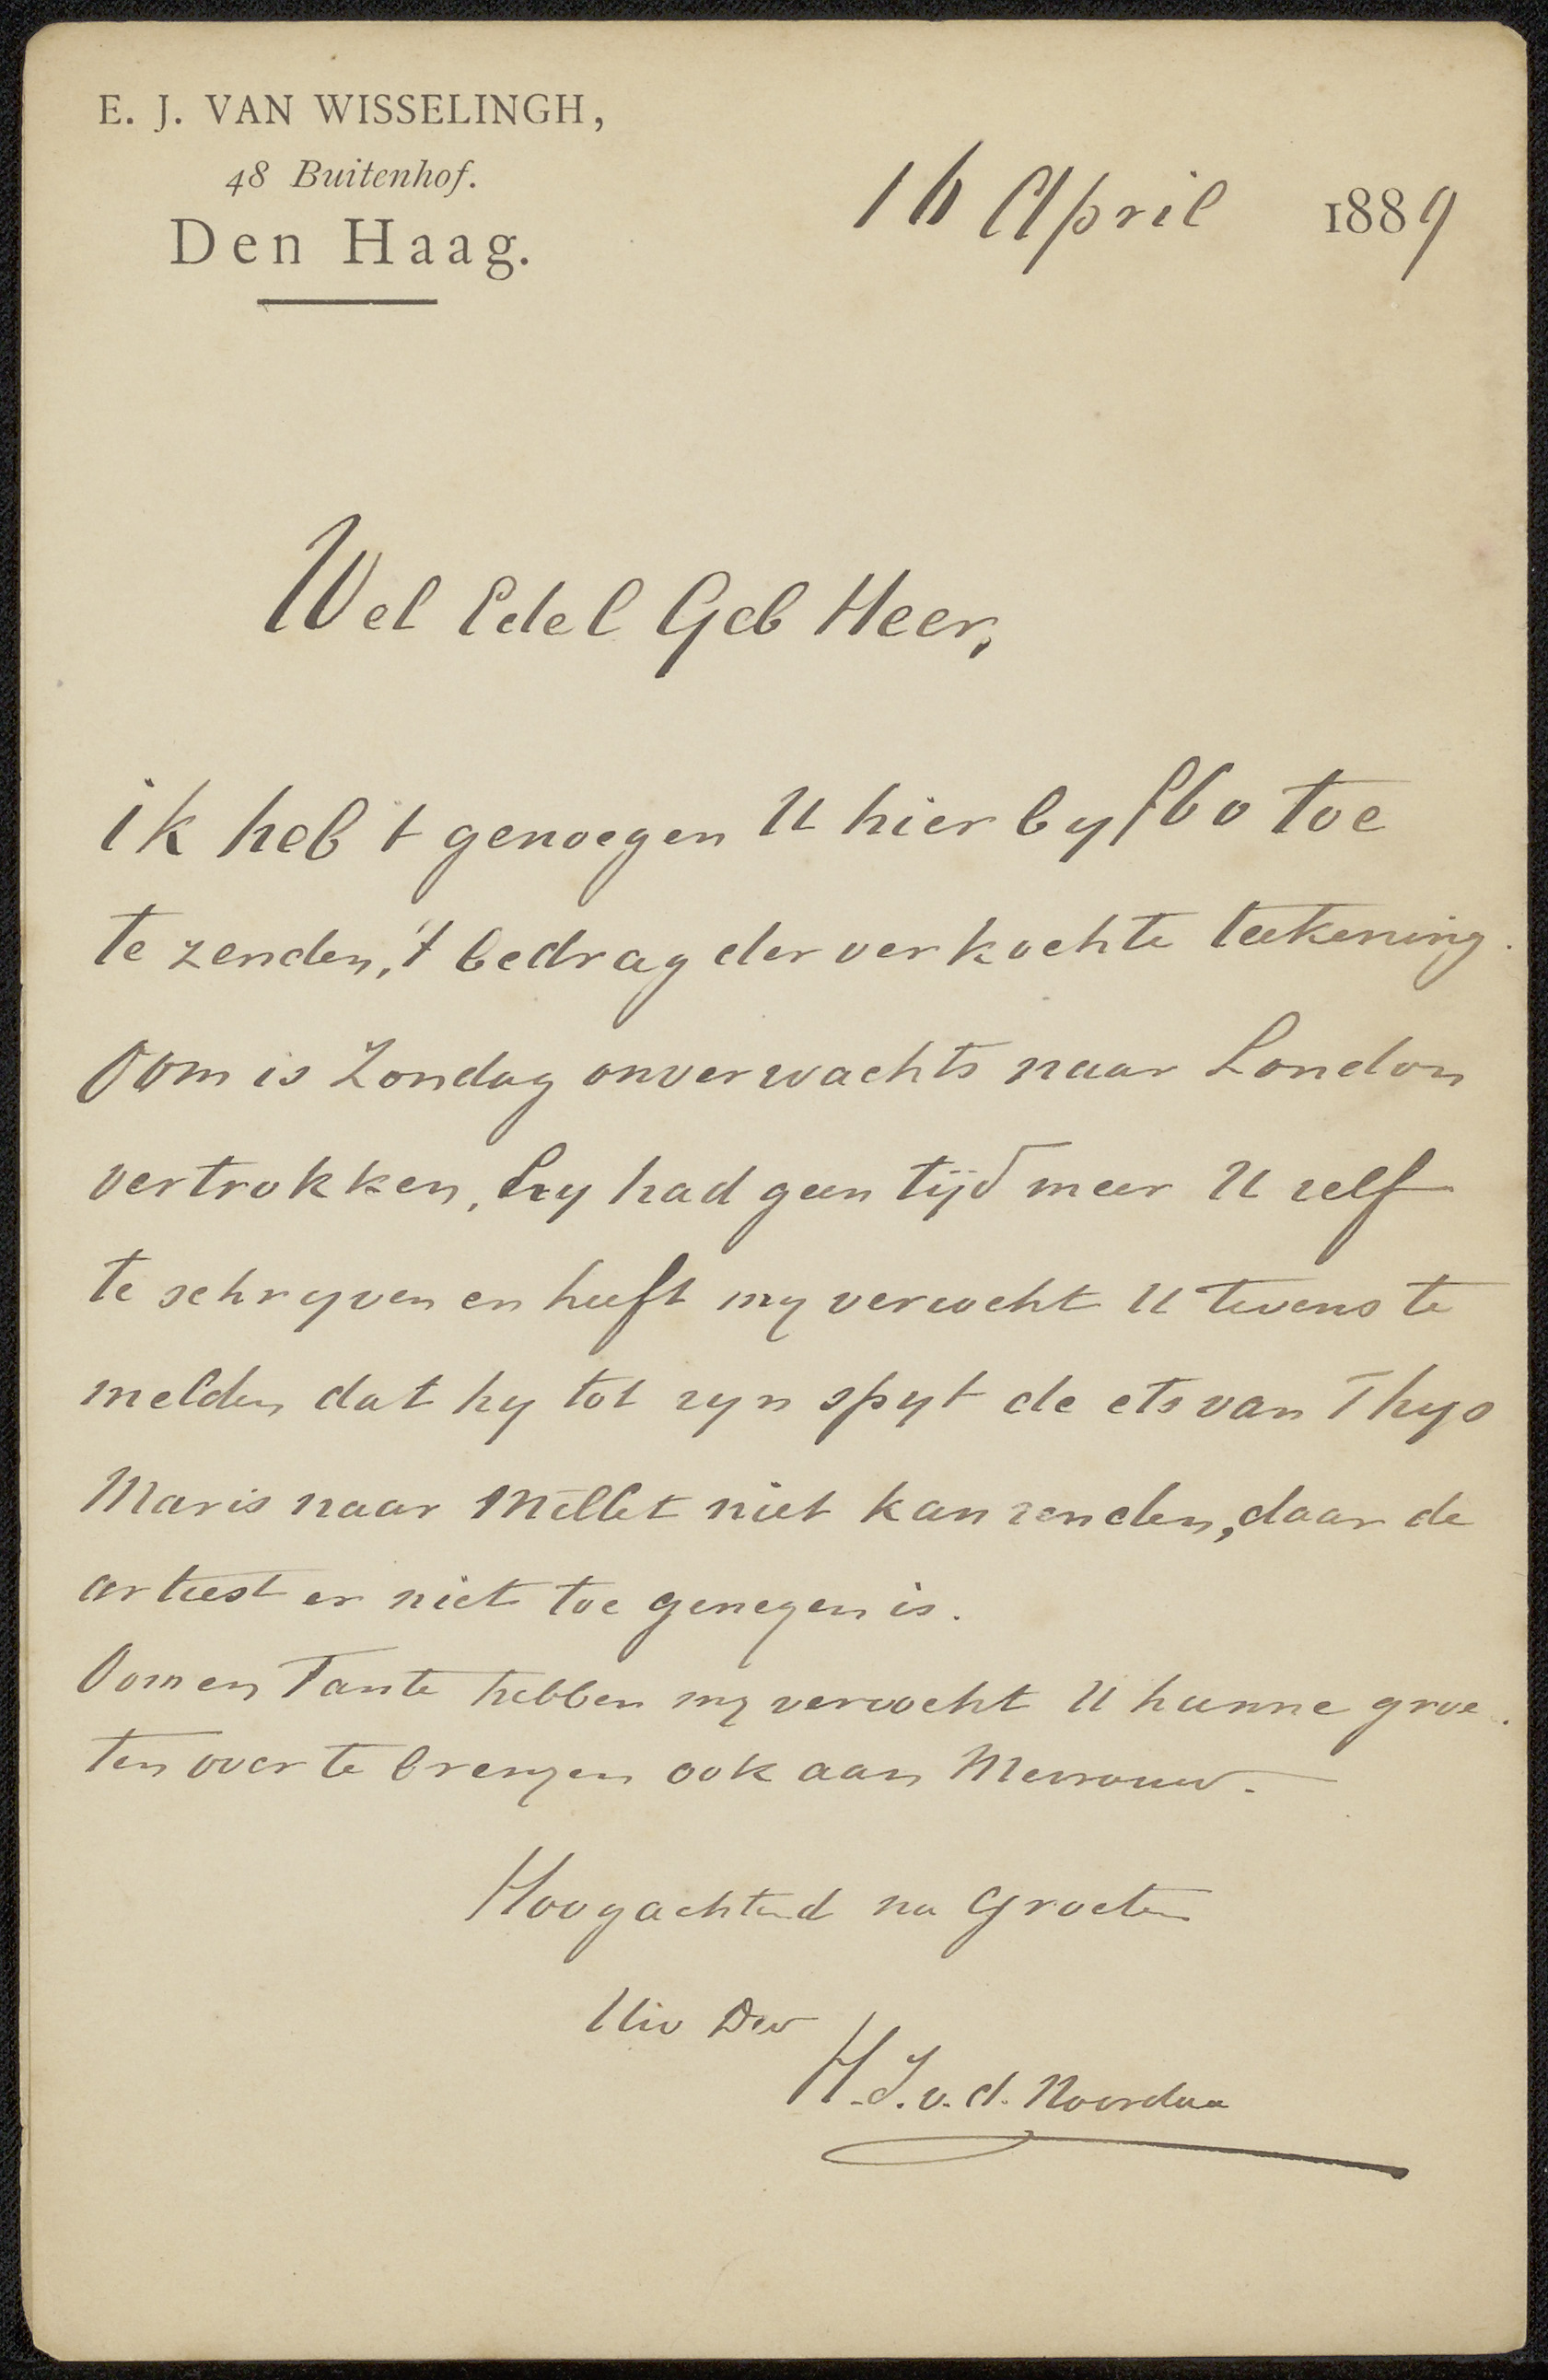 E. J. VAN WISSELINGH,
48 Buitenhof.
Den Haag.
16 April 1889
Wel Edel Geb Heer,
ik heb 't genoegen U hier by f60 toe
te zenden, 't bedrag der verkochte teekening.
Oom is Zondag onverwachts naar London
vertrokken, hy had geen tijd meer U zelf
te schryven en heeft my verzocht U tevens te
melden dat hy tot zyn spyt de ets van Thys
Maris naar Millet niet kan zenden, daar de
artiest er niet toe genegen is.
Oom en Tante hebben my verzocht U hunne groe-
ten over te brengen ook aan Mevrouw.
Hoogachtend na Groeten
Uw Dw
H.J. v. d. Noordaa